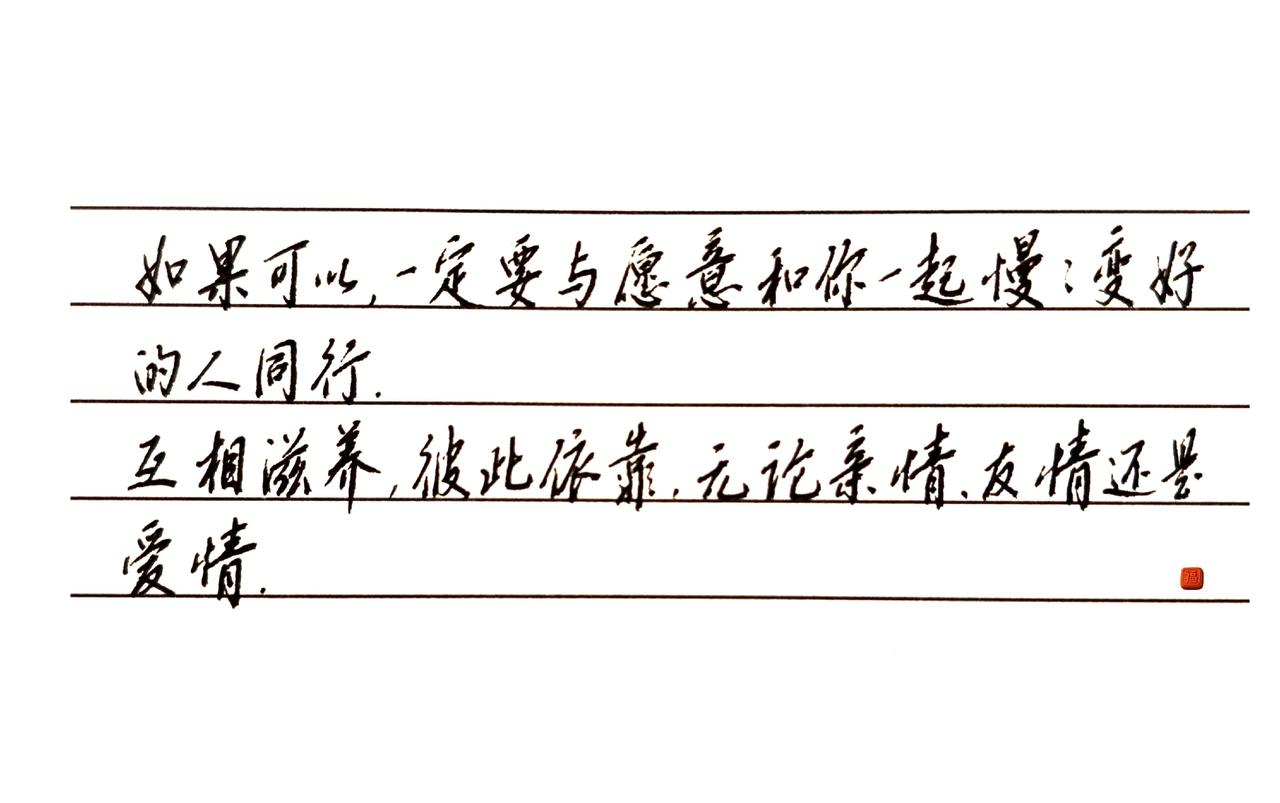 如果可以,一定要与愿意和你一起慢:变好
的人同行.
互相滋养,彼此依靠.无论亲情、友情还是
爱情.
福